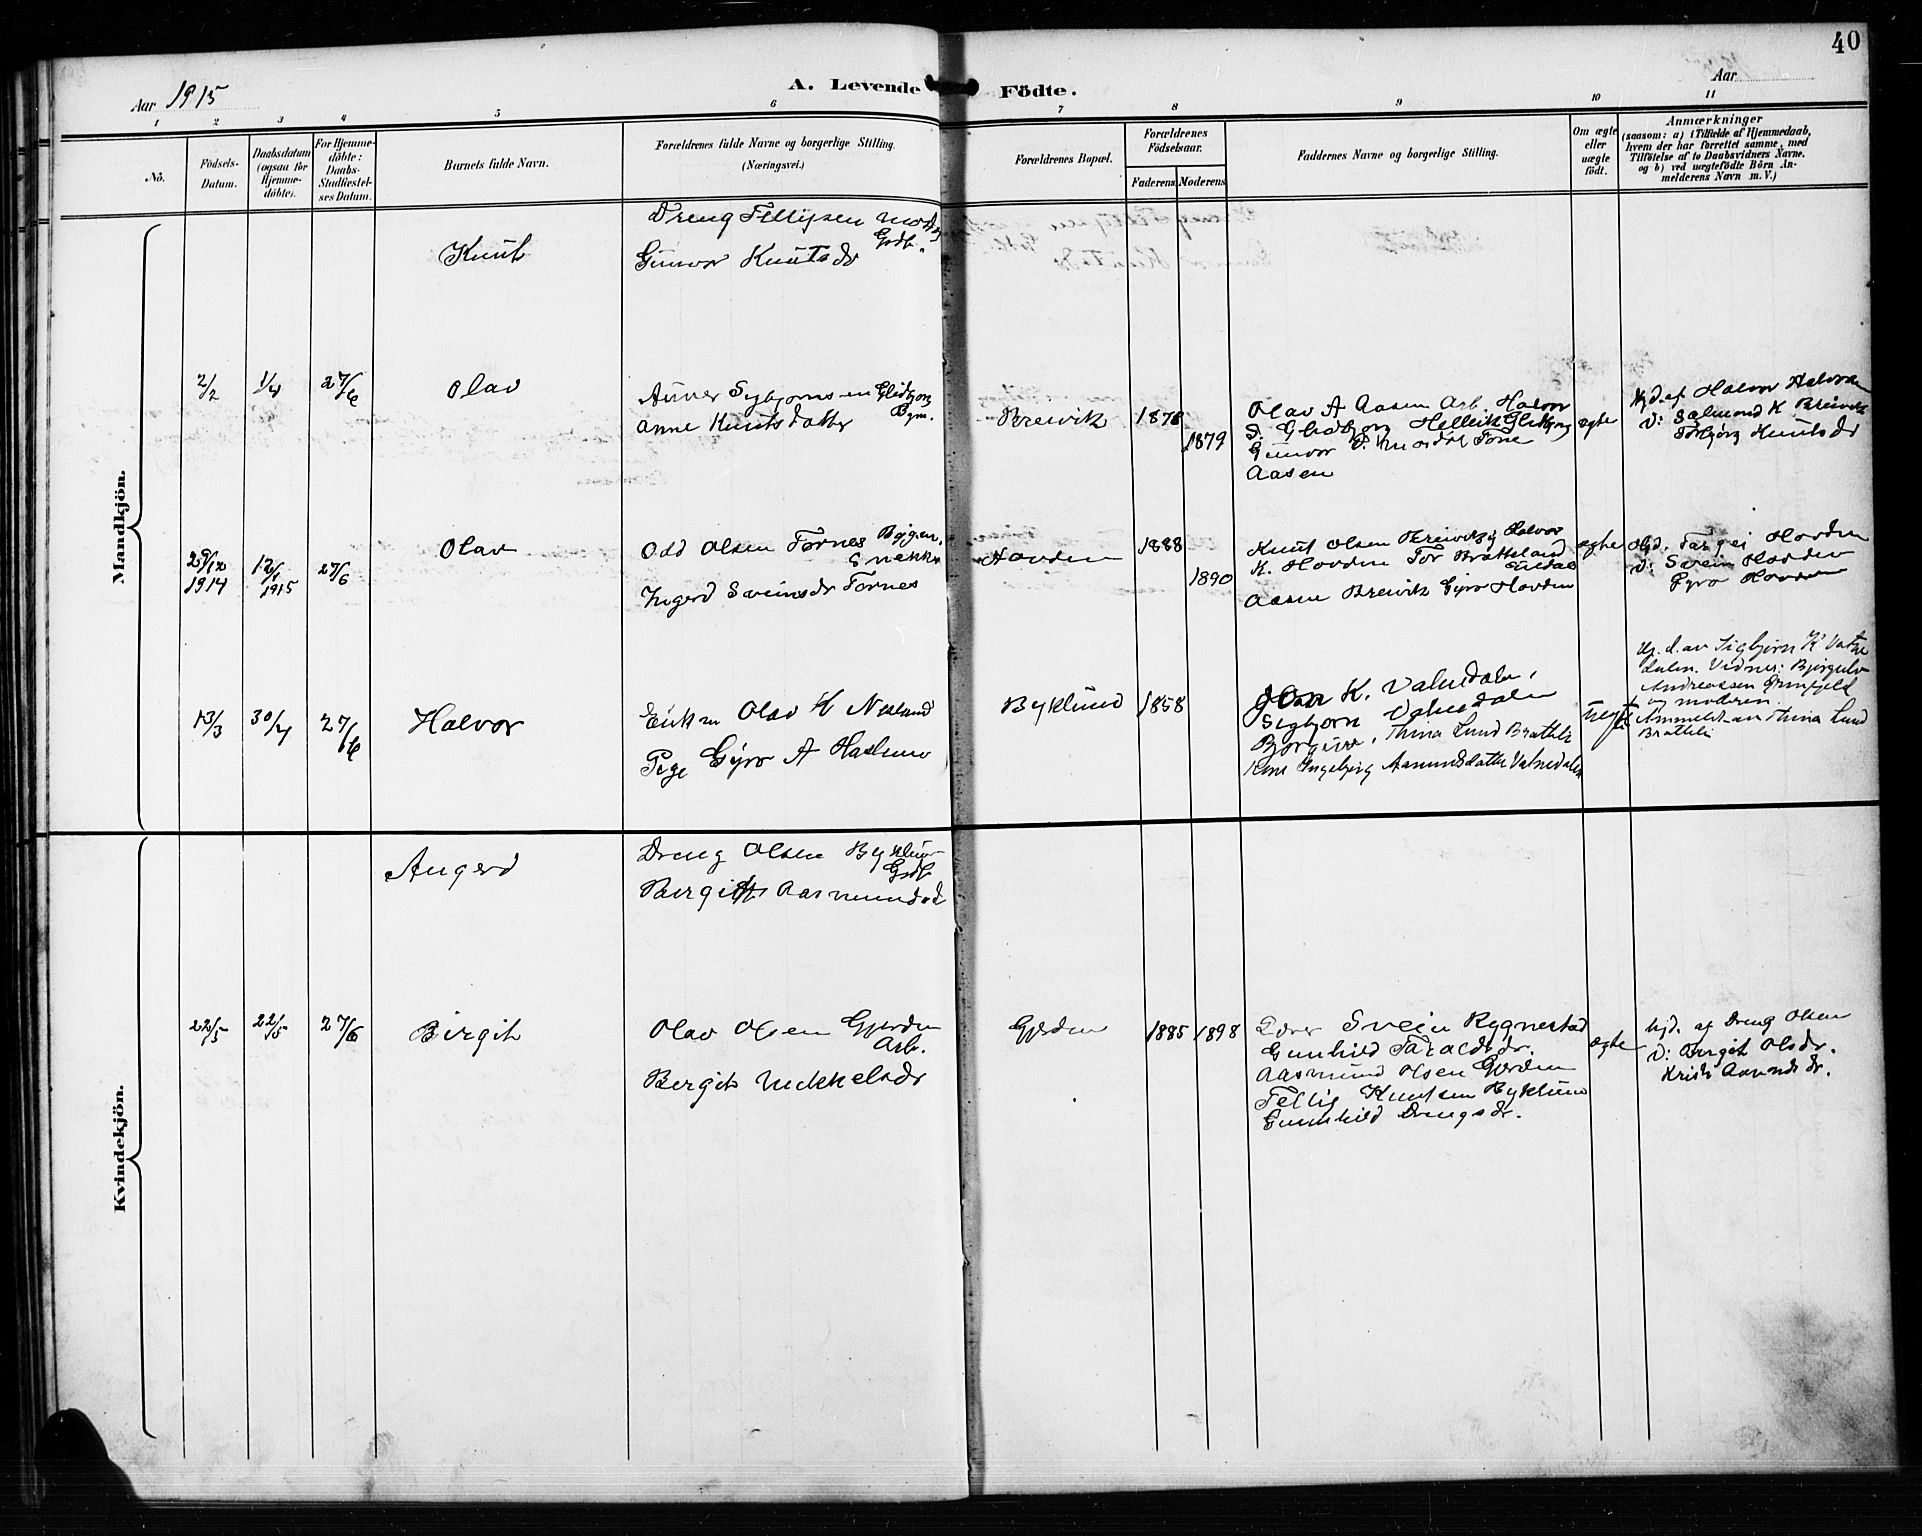 40
Aar 1915
A. Levende Födte.
Aar
1 2 3 4 5 6 7 8 9 10 11
No.
Födsels-
Datum.
Daabsdatum
(ogsaa for
Hjemme-
döbte).
For Hjemme-
döbte:
Daabs-
Stadfæstel-
ses Datum.
Barnets fulde Navn.
Forældrenes fulde Navne og borgerlige Stilling.
(Næringsvei.)
Forældrenes Bopæl.
Forældrenes
Födselsaar.
Faderens Moderens
Faddernes Navne og borgerlige Stilling.
Om ægte
eller
uægte
födt.
Anmærkninger
(saasom: a) i Tilfælde af Hjemmedaab,
hvem der har forrettet samme, med
Tilföielse af to Daabsvidners Navne.
og b) ved uægtefödte Börn An-
melderens Navn m. V.)
Mandkjön.
Knut
Dreng Tellefsen
Gdb.
Gunvor Knutsdr
2/2
1/4
27/6
Olav
Gledbjorg
Bym.
Anne Knutsdatter
Breivik
1878
1879
Olav A Aasen Arb. Halvor
D. Glidbjorg
Gunvor Tone
Aasen
ægte
Hjd. af Halvor Halvorsen
V: Salmond K Breivik
Torbjørg Knutsdr
29/12
1914
12/1
1915
27/6
Olav
Odd Olsen Tornes Bygn.
Snekker
Ingerd Sveinsdr Tornes
Hovden
1888
1890
Knut Olsen Breivik Halvor
K. Hovden Tor Bratteland
Aasne Breivik Gyro Hovden
ægte
Hjd. Targei Hovden
V: Svein Hovden
Gyro Hovden
13/3
30/4
27/6
Halvor
Enkem Olav K Nesland
Pige Gyro A Haslemo
Byklund
1858
Jon K. Vatnedalen,
Sigbjorn Vatnedalen
Thina Lund Bratteli
Ingebjørg Aamundsdatter Vatnedalen
uægte
Hj. d. av Sigbjørn K Vatne
dalen. Vidner: Bjørgulv
Andreassen
og moderen.
Anmeldt av Thina Lund
Bratteli
Kvindekjön.
Angerd
Dreng Olsen Byklum
Gdb.
Bergit Aasmundsd
22/5
22/5
27/6
Birgit
Olav Olsen Gjerden
Arb.
Bergit Mikkelsdr
Gjerden
1885 1898
Lærer Svein Rygnestad
Gunhild Taraldsdr.
Aasmund Olsen Gjerden
Tellef Knutsen Byklum
Gunhild Drengsdr.
ægte
hjd. af Dreng Olsen
V: Birgit Olsdr.